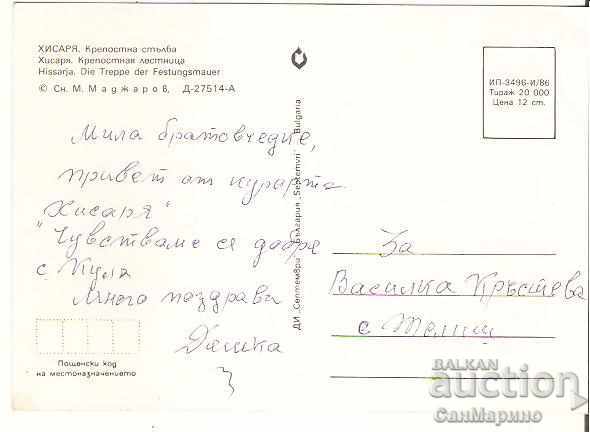 ХИСАРЯ. Крепостна стълба
Хисаря. Крепостная лестница
Hissarja. Die Treppe der Festungsmauer
© Сн. М. Маджаров, Д-27514-А
Мила братовчедке,
привет от курорта
"Хисаря"
Чувстваме се добре
с Куля
Много поздрави
Дашка
Пощенски код
на местоназначението
ДИ „Септември" България „Septemvri" Bulgaria
ИП-3496-И/86
Тираж 20 000
Цена 12 ст.
За
Василка Кръстева
с Телиш
BALKAN
auction
СанМарино